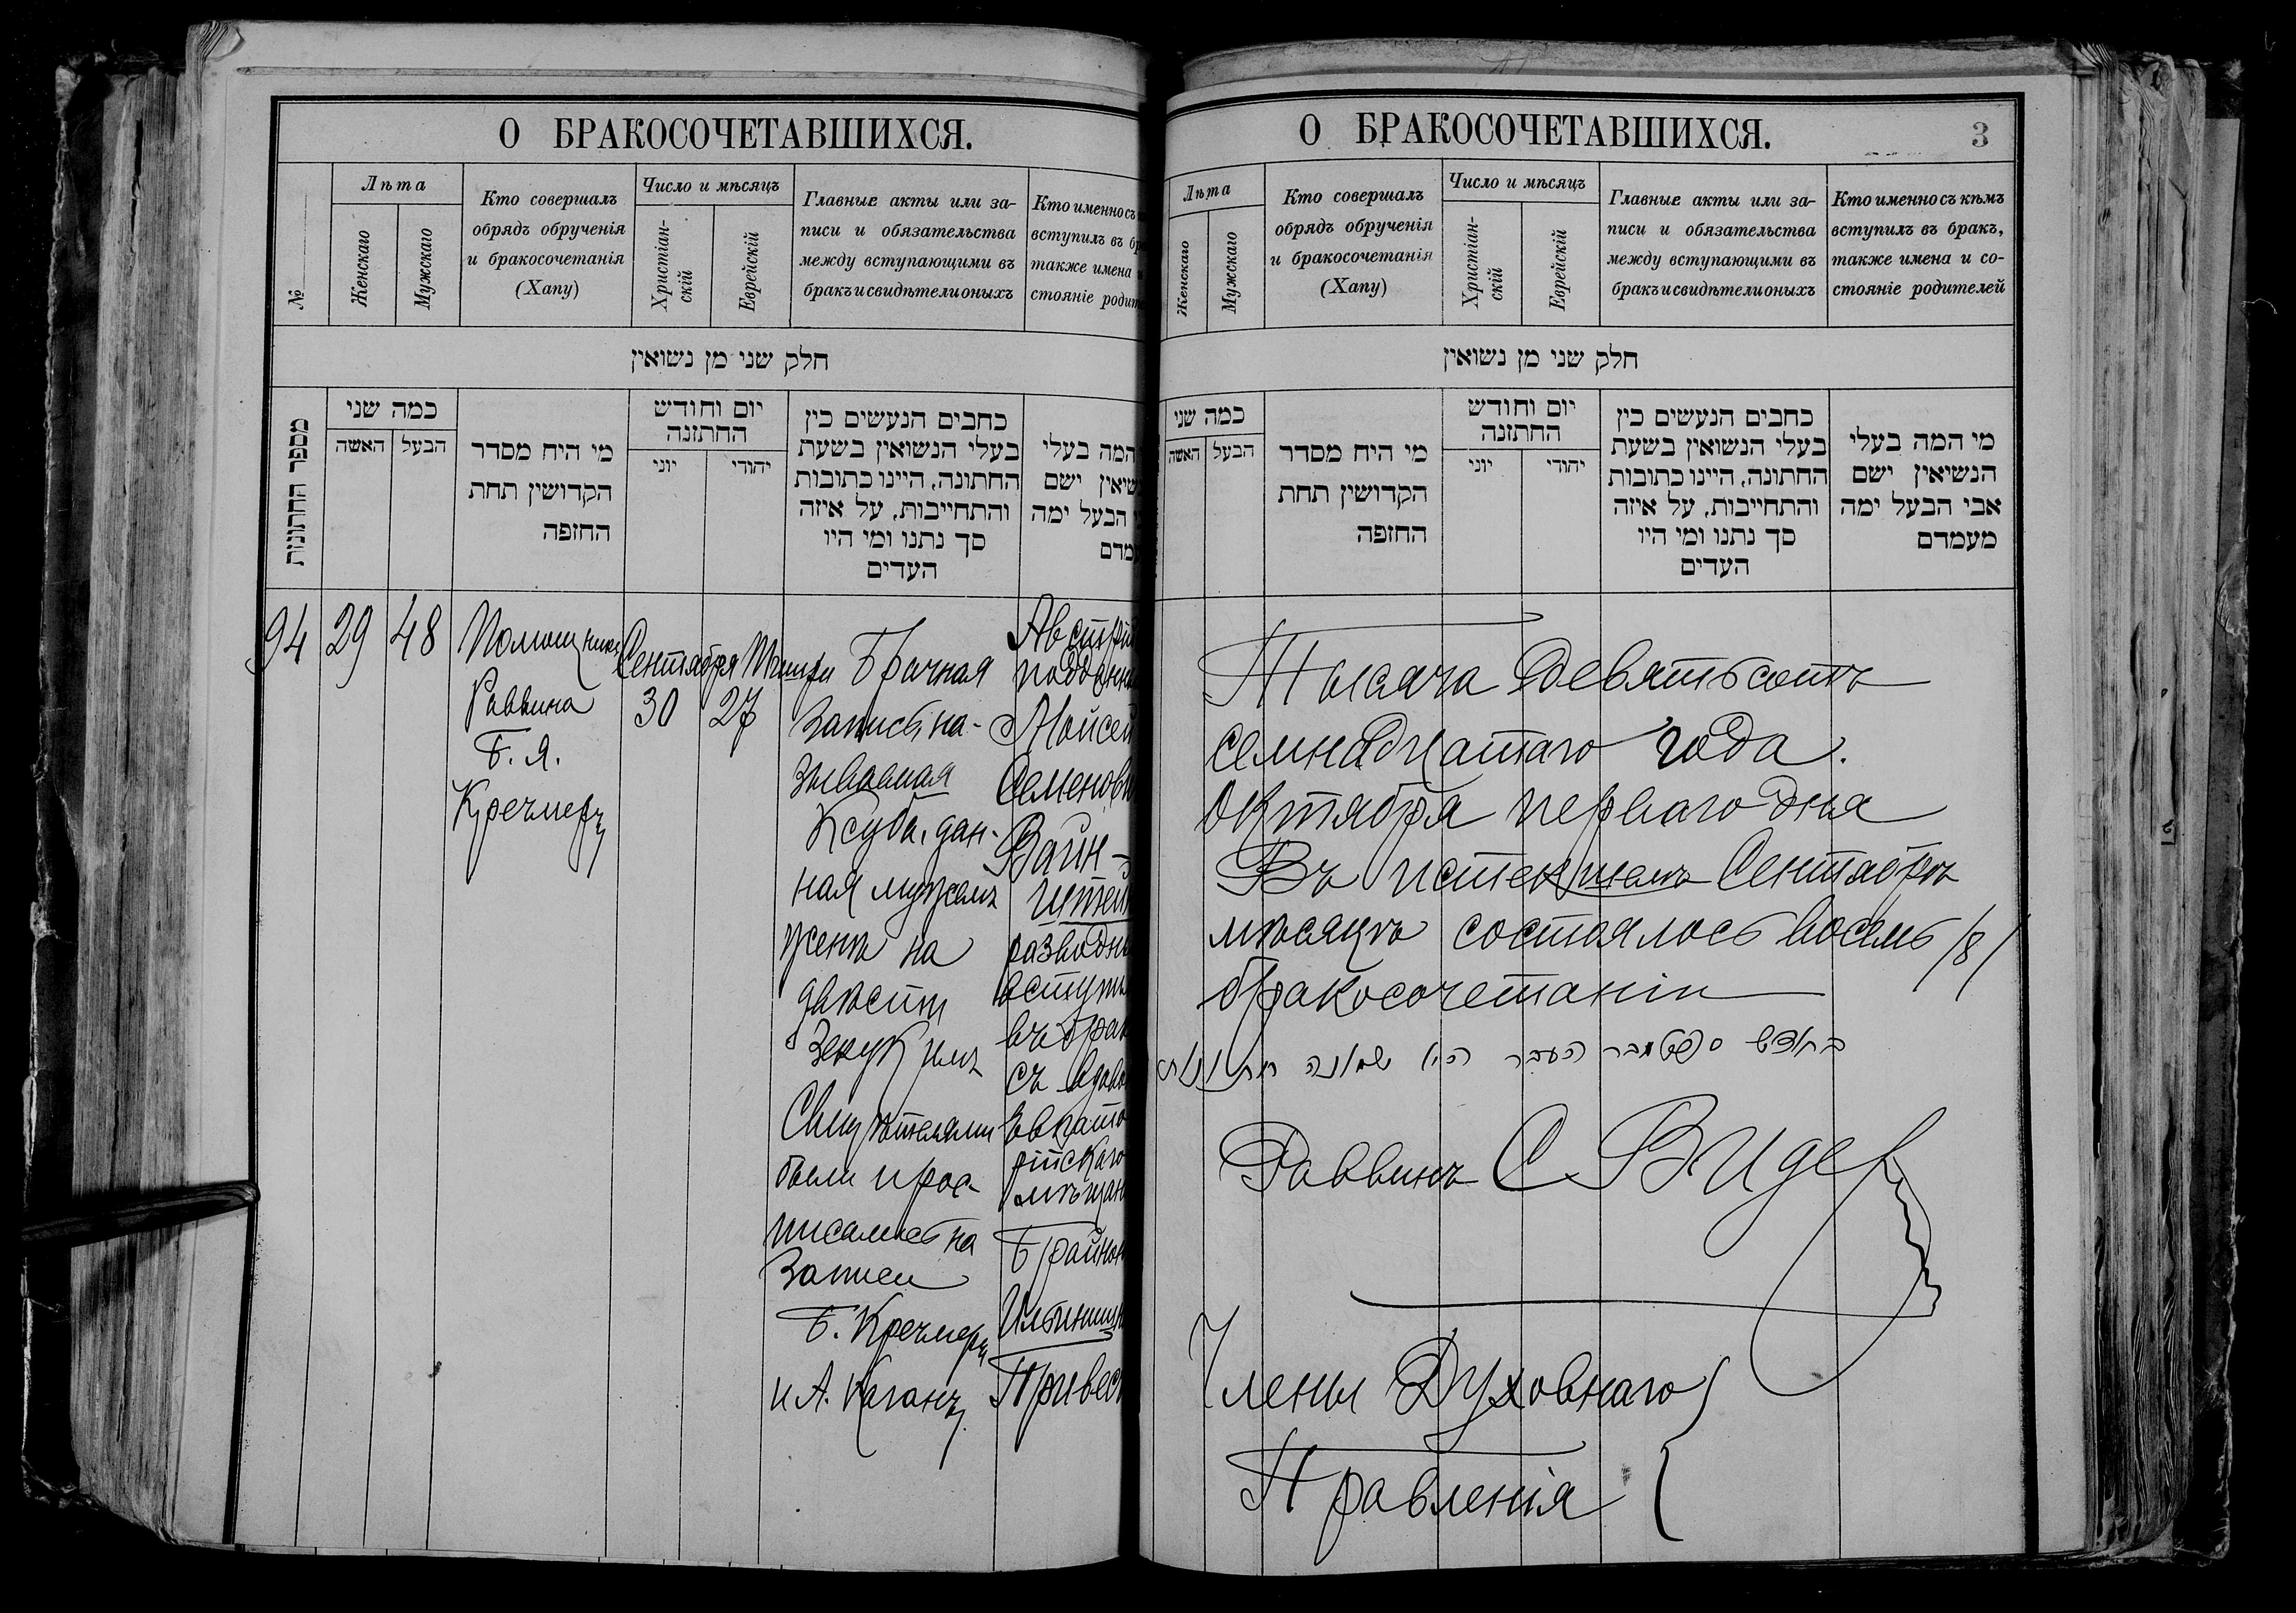 О БРАКОСОЧЕТАВШИХСЯ.
№
Лѣта
Женскаго
Мужскаго
Кто совершалъ
обрядъ обрученія
и бракосочетанія
(Хапу)
Число и мѣсяцъ
Христіан-
скій
Еврейскій
Главные акты или за-
писи и обязательства
между вступающими въ
бракъ и свидѣтели оныхъ
Кто именно съ
вступилъ въ бр
также имена и
стояніе родит
חלק שני מן נשואין
מספר החתונות
כמה שני
האשה
הבעל
מי היח מסדר
הקדושין תחת
החופה
יום וחודש
החתונה
יוני
יהודי
כחבים הנעשים כין
בעלי הנשואין בשעת
החתונה, היינו כתובות
והתחייבות, על איזה
סך נתנו ומי היו
העדים
המה בעלי
שיאין ישם
הבעל ימה
עמדם
94
29
48
Помощникъ
Раввина
Б. Я.
Кречмеръ
Сентября
30
Тишри
27
Брачная
запись на-
зываемая
Ксуба, дан-
ная мужемъ
женѣ на
двѣсти
Зекукимъ
Свидѣтелями
были и рос-
писались на
Записи
Б. Кречмеръ
и А. Каганъ
Австрій
подданн
Мойсей
Семенови
Вайн-
штей
разводн
вступи
въ брак
съ вдово
Евпато
рійскаго
мѣщан
Брайною
Ильинишн
Тривес
О БРАКОСОЧЕТАВШИХСЯ.
3
Лѣта
Женскаго
Мужскаго
Кто совершалъ
обрядъ обрученія
и бракосочетанія
(Хапу)
Число и мѣсяцъ
Христіан-
скій
Еврейскій
Главные акты или за-
писи и обязательства
между вступающими въ
бракъ и свидѣтели оныхъ
Кто именно съ кѣмъ
вступилъ въ бракъ,
также имена и со-
стояніе родителей
חלק שני מן נשואין
כמה שני
האשה
הבעל
מי היח מסדר
הקדושין תחת
החופה
יום וחודש
החתונה
יוני
יהודי
כחבים הנעשים כין
בעלי הנשואין בשעת
החתונה, היינו כתובות
והתחייבות, על איזה
סך נתנו ומי היו
העדים
מי המה בעלי
הנשיאין ישם
אבי הבעל ימה
מעמדם
Тысяча девятьсотъ
семнадцатаго года.
Октября перваго дня
Въ истекшемъ Сентябрѣ
мѣсяцѣ состоялось восемь /8/
бракосочетаніи
בחודש סעפטמבר העבר היו שמונה חתונות
Раввинъ С Видер
Члены Духовнаго
Правленія